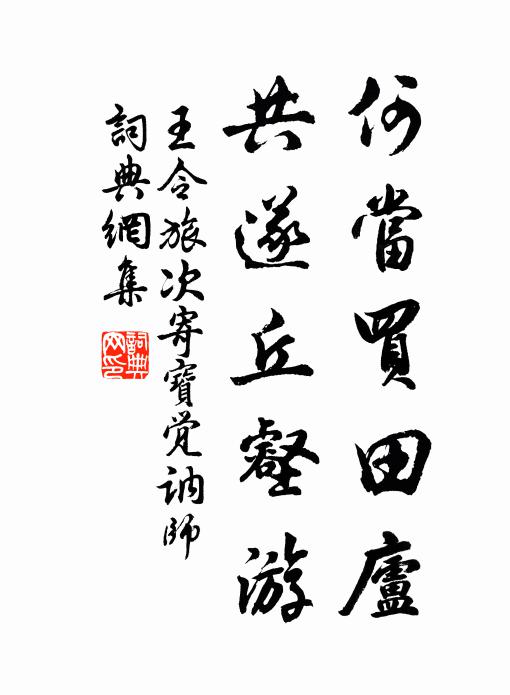 何當買田廬
共遂丘壑游
王令旅次寄寶覚訥師
詞典網集
詞典網印